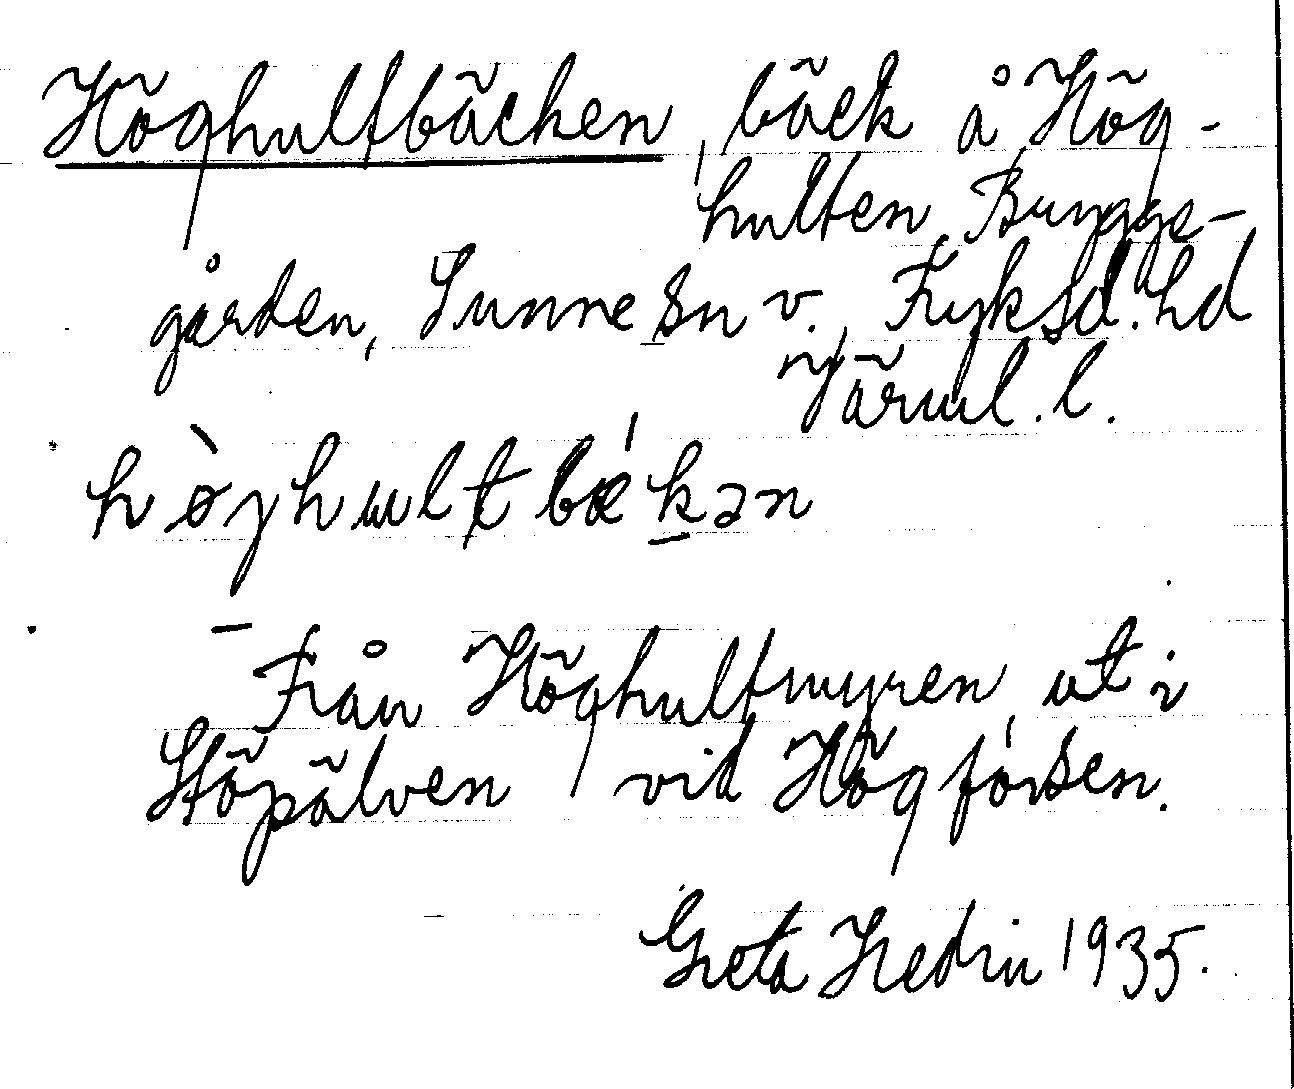 Höghultbäcken, bäck å Hög-
hulten, Byngs-
gården, Sunne sn v., Fryksd. hd
Värml. l.
hø̀ghultbǽkən
– Från Höghultmyren, ut i
Stöpälven vid Högforsen.
Greta Hedin 1935.